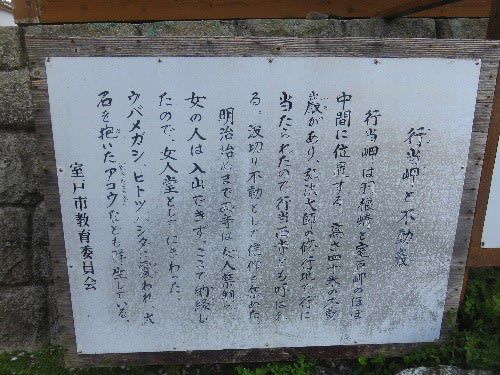 行当岬と不動巖
行当岬は羽根崎と室戸岬のほぼ
中間に位置する 高さ四十米の不動
巖があり、弘法大師の修行地で行に
当たられたので行当西寺とも呼ばれ
る。波切り不動として信仰を集めた。
明治 治めまで西寺は女人禁制で
女の人は入山できず、ここで納経し
たので、女人堂としてにぎわった
ウバメガシ、ヒトツバ、シダに覆われ、大
石を抱いたアコウなども群生している。
室戸市教育委員会